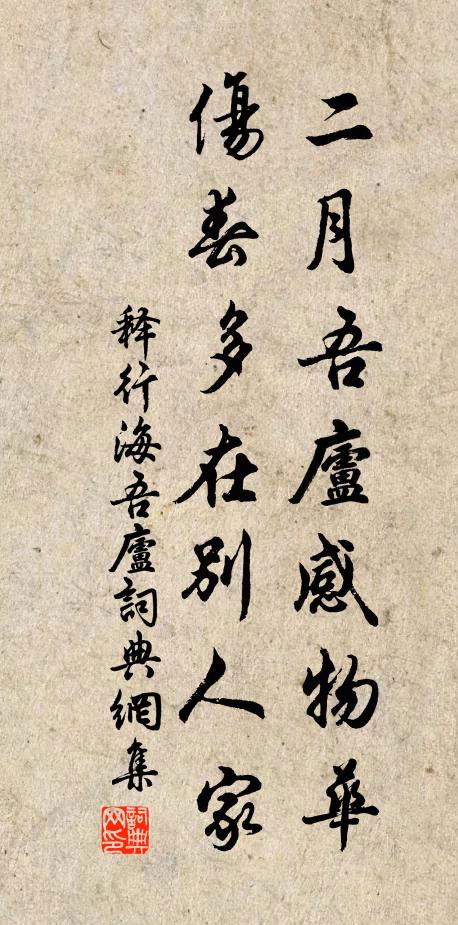 二月吾廬感物華
傷春多在別人家
释行海吾廬詞典網集
詞典网印